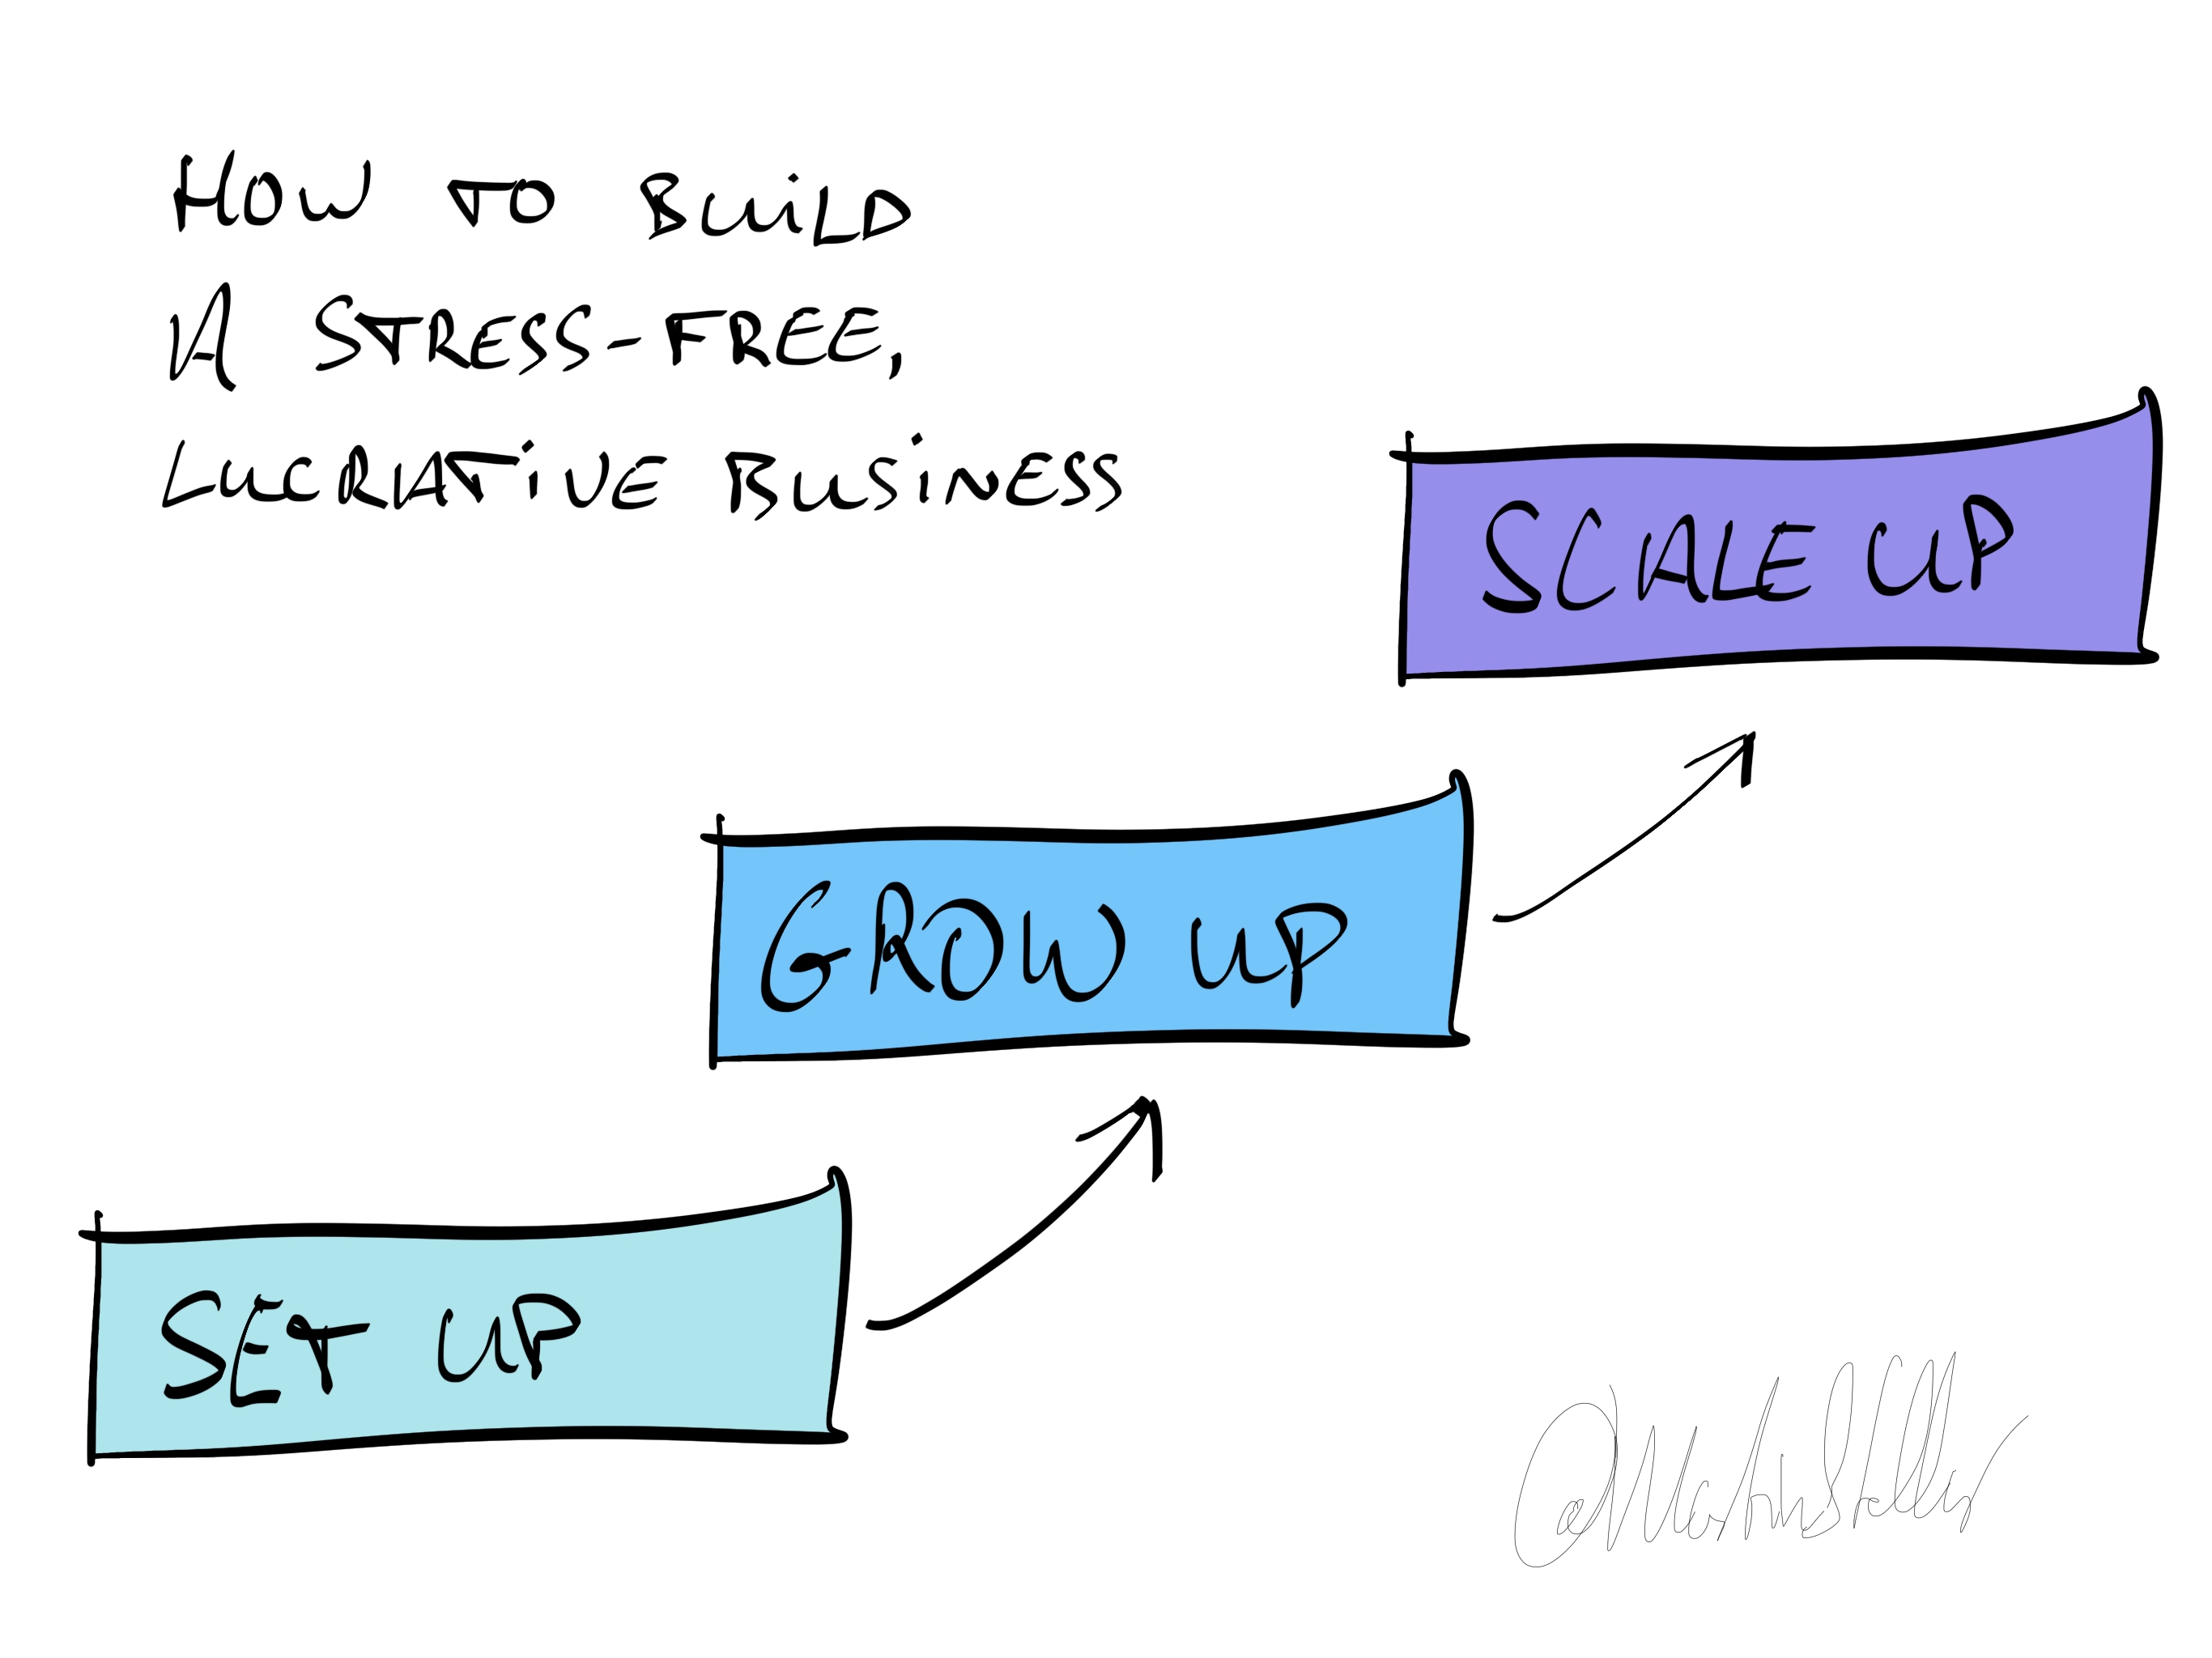 How to Build
A Stress-Free,
Lucrative Business
SCALE UP
GROW UP
SET UP